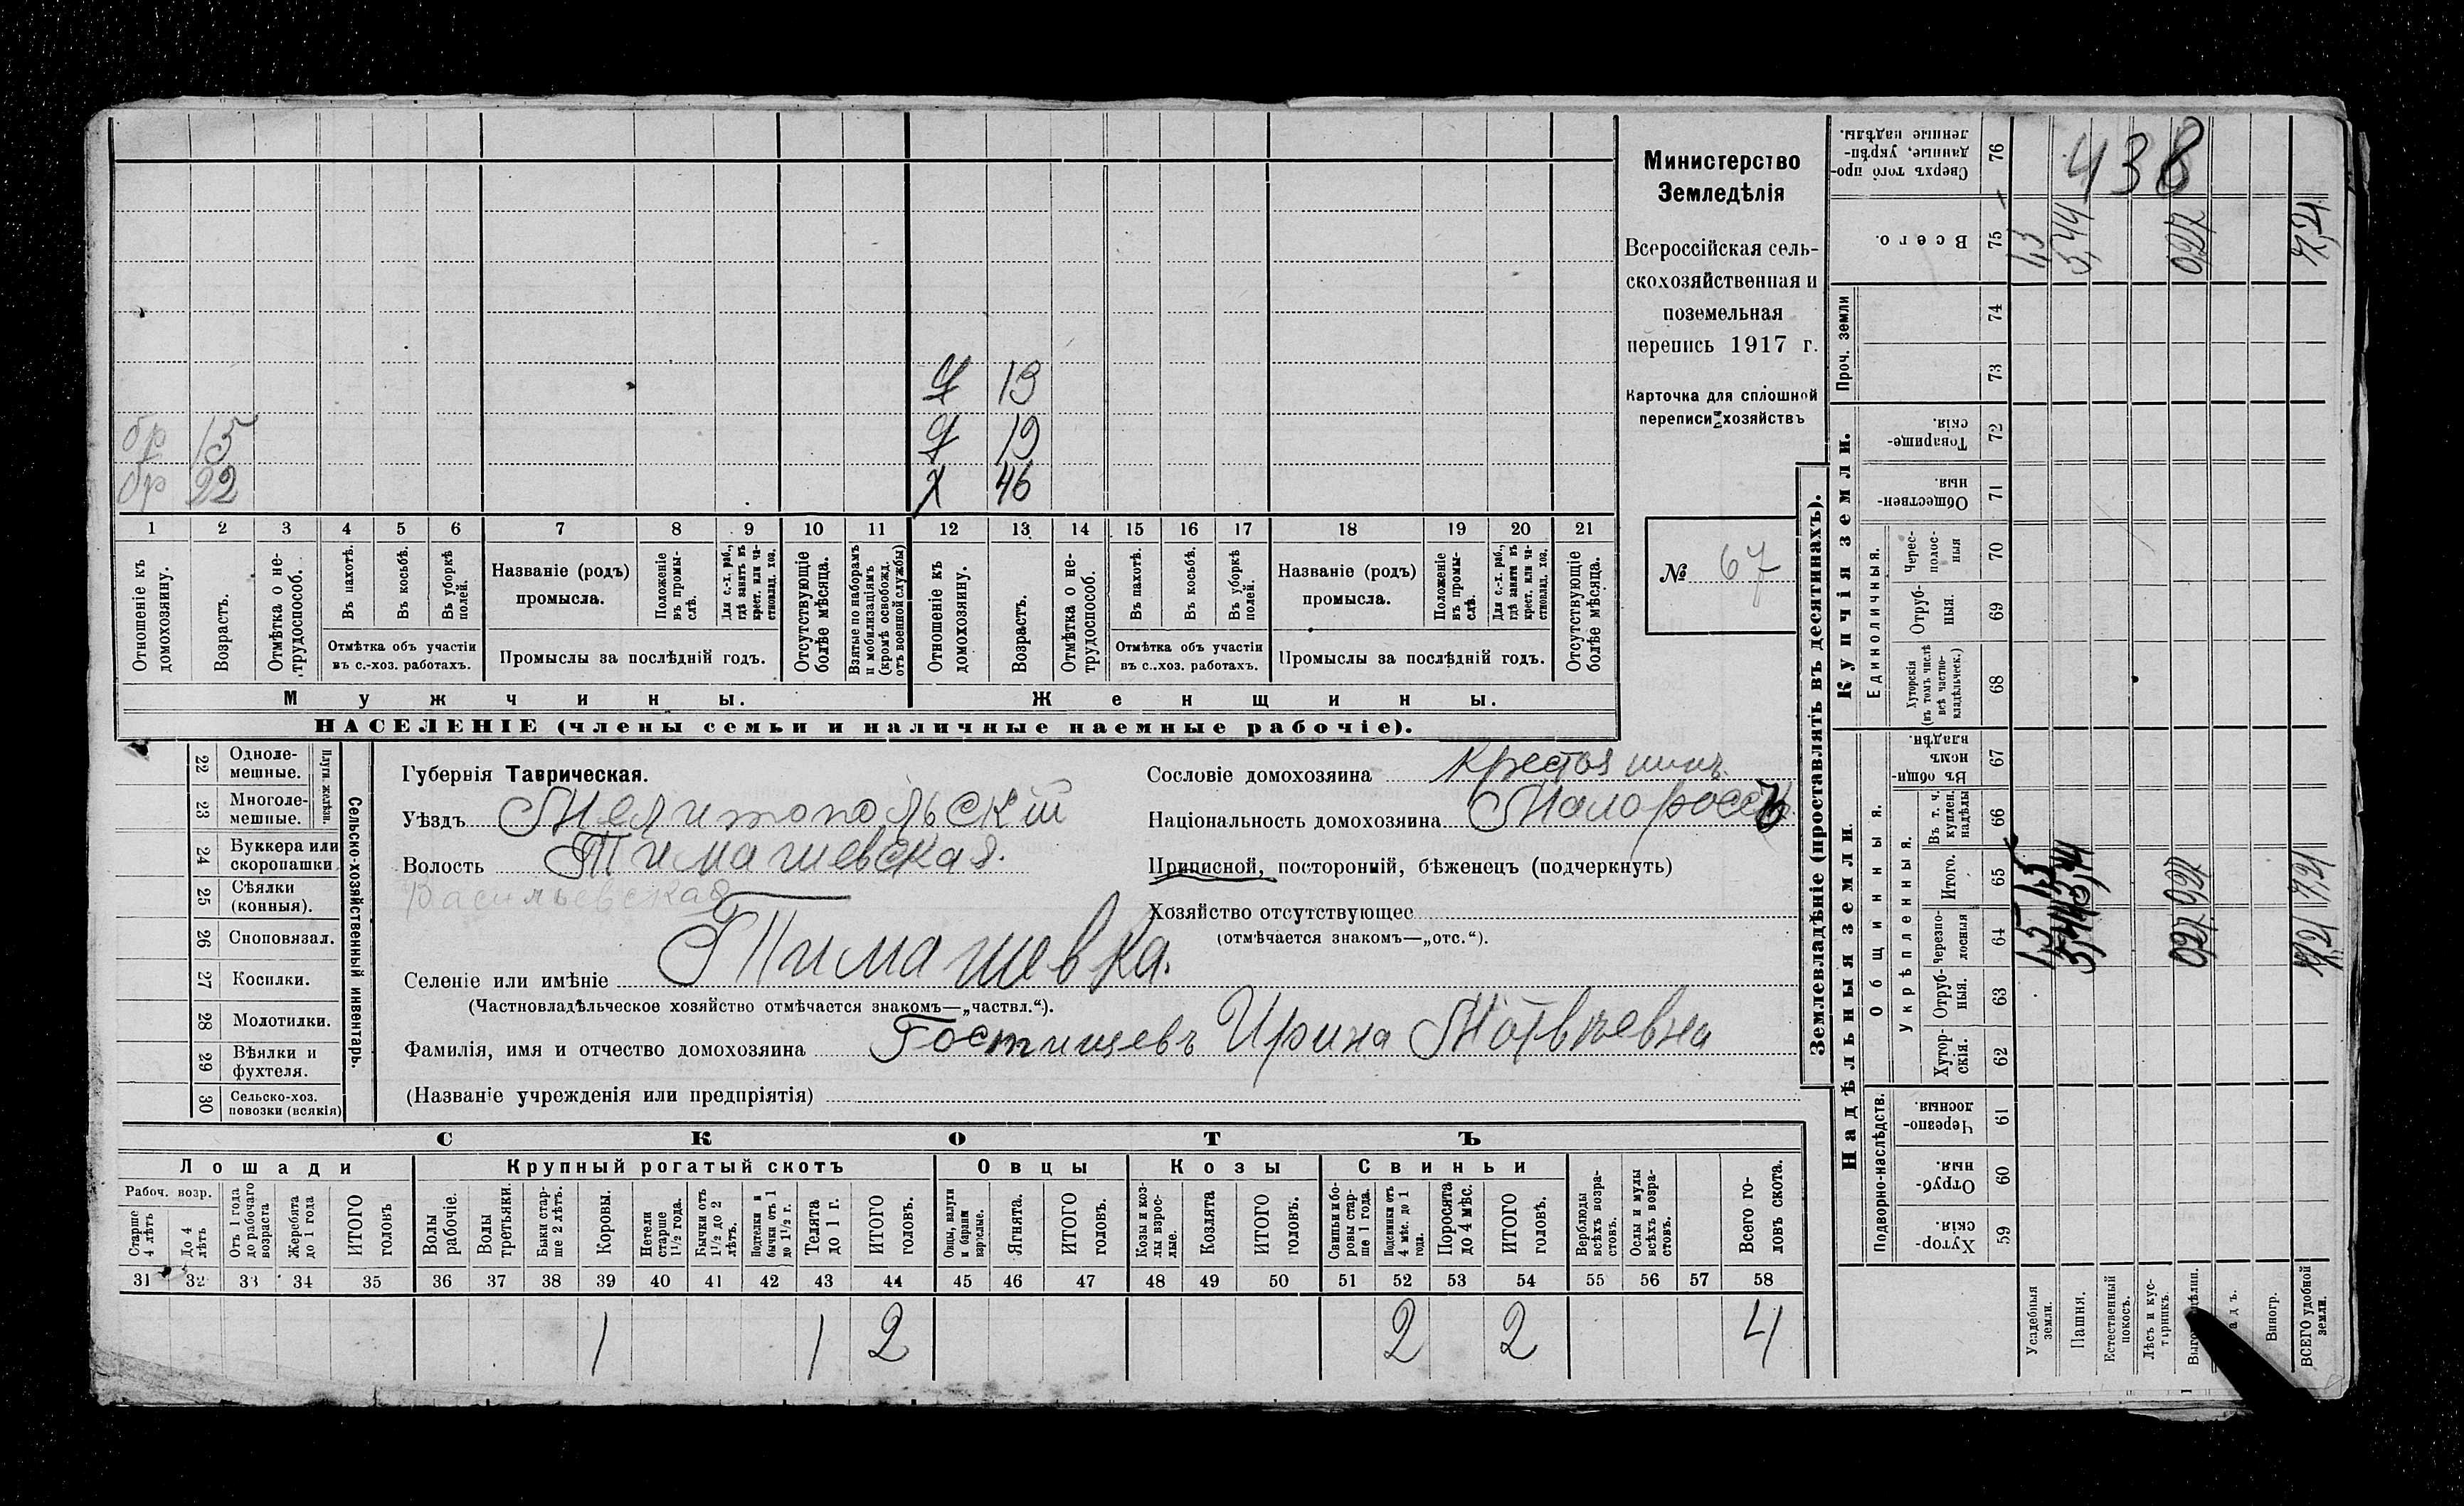 Министерство
Земледѣлія
Всероссійская сель-
скохозяйственная и
поземельная
перепись 1917 г.
Карточка для сплошной
переписи хозяйствъ
№ 67
438
Д 13
бр 15 Д 19
бр 22 Х 46
1 2 3 4 5 6 7 8 9 10 11 12 13 14 15 16 17 18 19 20 21
Отношеніе къ домохозяину.
Возрастъ.
Отмѣтка о не-трудоспособ.
Въ пахотѣ.
Въ косьбѣ.
Въ уборкѣ полей.
Отмѣтка объ участіи
въ с.-хоз. работахъ.
Названіе (родъ)
промысла.
Положеніе въ промы-слѣ.
Для с.-х. раб., гдѣ занятъ въ крест. или ча-стновлад. хоз.
Промыслы за послѣдній годъ.
Отсутствующіе болѣе мѣсяца.
Взятые по наборамъ и мобилизаціямъ (кромѣ освобожд. отъ военной службы)
Отношеніе къ домохозяину.
Возрастъ.
Отмѣтка о не-трудоспособ.
Въ пахотѣ.
Въ косьбѣ.
Въ уборкѣ полей.
Отмѣтка объ участіи
въ с.-хоз. работахъ.
Названіе (родъ)
промысла.
Положеніе въ промы-слѣ.
Для с.-х. раб., гдѣ занята въ крест. или ча-стновлад. хоз.
Промыслы за послѣдній годъ.
Отсутствующіе болѣе мѣсяца.
Мужчины. Женщины.
НАСЕЛЕНІЕ (члены семьи и наличные наемные рабочіе).
Сельско-хозяйственный инвентарь.
Плуги желѣзн.
22 Одноле-мешные.
23 Многоле-мешные.
24 Буккера или скоропашки
25 Сѣялки (конныя).
26 Сноповязал.
27 Косилки.
28 Молотилки.
29 Вѣялки и фухтеля.
30 Сельско-хоз. повозки (всякія)
Губернія Таврическая.
Уѣздъ Мелитопольскій
Волость Тимашевская.
Васильевская
Селеніе или имѣніе Тимашевка.
(Частновладѣльческое хозяйство отмѣчается знакомъ—„частвл.“).
Фамилія, имя и отчество домохозяина Гостищевъ Ирина Матвѣевна
(Названіе учрежденія или предпріятія)
Сословіе домохозяина Крестьянинъ
Національность домохозяина Малороссъ
Приписной, посторонній, бѣженецъ (подчеркнуть)
Хозяйство отсутствующее
(отмѣчается знакомъ—„отс.“).
СКОТЪ
Лошади Крупный рогатый скотъ Овцы Козы Свиньи
Рабоч. возр.
Старше 4 лѣтъ
До 4 лѣтъ
Отъ 1 года до рабочаго возраста
Жеребята до 1 года
ИТОГО головъ
Волы рабочіе.
Волы третьяки.
Быки стар-ше 2 лѣтъ.
Коровы.
Нетели старше 1½ года.
Бычки отъ 1½ до 2 лѣтъ.
Подтелки и бычки отъ 1 до 1½ г.
Телята до 1 г.
ИТОГО головъ.
Овцы, валухи и бараны взрослые.
Ягнята.
ИТОГО головъ.
Козы и коз-лы взрос-лые.
Козлята
ИТОГО головъ.
Свиньи и бо-ровы стар-ше 1 года.
Подсвинки отъ 4 мѣс. до 1 года.
Поросята до 4 мѣс.
ИТОГО головъ.
Верблюды всѣхъ возра-стовъ.
Ослы и мулы всѣхъ возра-стовъ.
Всего го-ловъ скота.
31 32 33 34 35 36 37 38 39 40 41 42 43 44 45 46 47 48 49 50 51 52 53 54 55 56 57 58
1 1 2 2 2 4
Землевладѣніе (проставлять въ десятинахъ).
Надѣльныя земли.
Подворно-наслѣдств.
Хутор-скія. 59
Отруб-ныя. 60
Черезпо-лосныя. 61
Общинныя.
Укрѣпленныя.
Хутор-скія. 62
Отруб-ныя. 63
Черезпо-лосныя 64
Итого. 65
Въ т. ч. куплен. надѣлы 66
Въ общи-номъ владѣн. 67
Купчія земли.
Единоличныя.
Хуторскія (въ томъ числѣ всѣ частно-владѣльческ.) 68
Отруб-ныя. 69
Черес-полос-ныя 70
Обществен-ныя. 71
Товарище-скія. 72
Проч. земли
73
74
Всего. 75
Сверхъ того про-данные, укрѣп-ленные надѣлы. 76
Усадебныя земли.
Пашня.
Естественный покосъ.
Лѣсъ и кус-тарникъ.
Виногр.
ВСЕГО удобной земли.